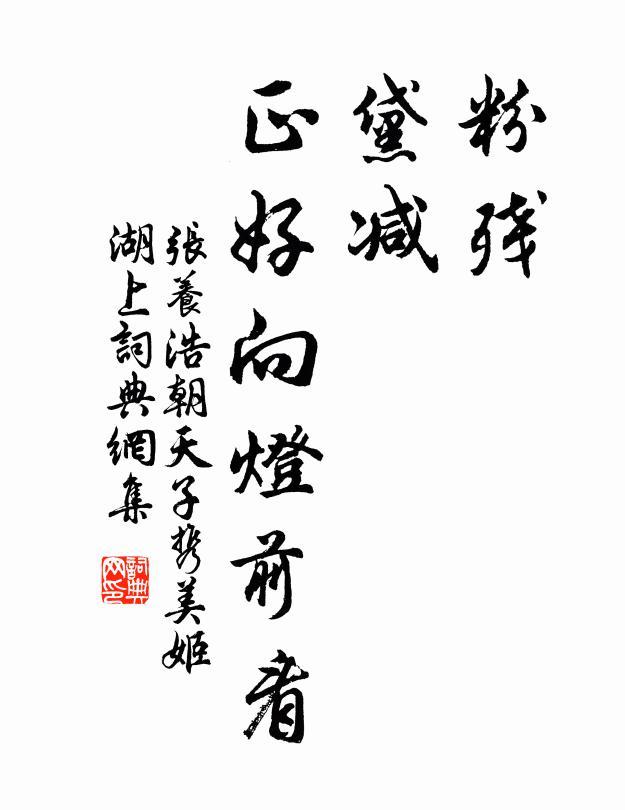 粉残
黛减
正好向燈前看
張養浩朝天子携美姬
湖上詞典網集
詞典
网印